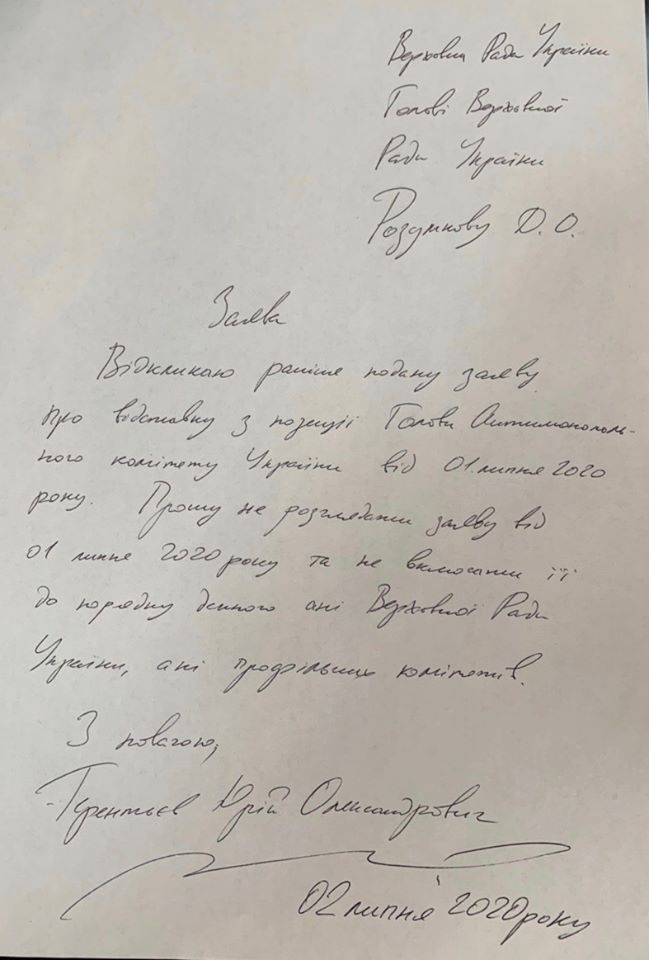 Верховна Рада України
Голові Верховної
Ради України
Разумкову Д. О.
Заява
Відкликаю раніше подану заяву
про відставку з позиції Голови Антимонополь-
ного комітету України від 01 липня 2020
року. Прошу не розглядати заяву від
01 липня 2020 року та не вносити її
до порядку денного ані Верховної Ради
України, ані профільних комітетів.
З повагою,
Терентьєв Юрій Олександрович
02 липня 2020 року